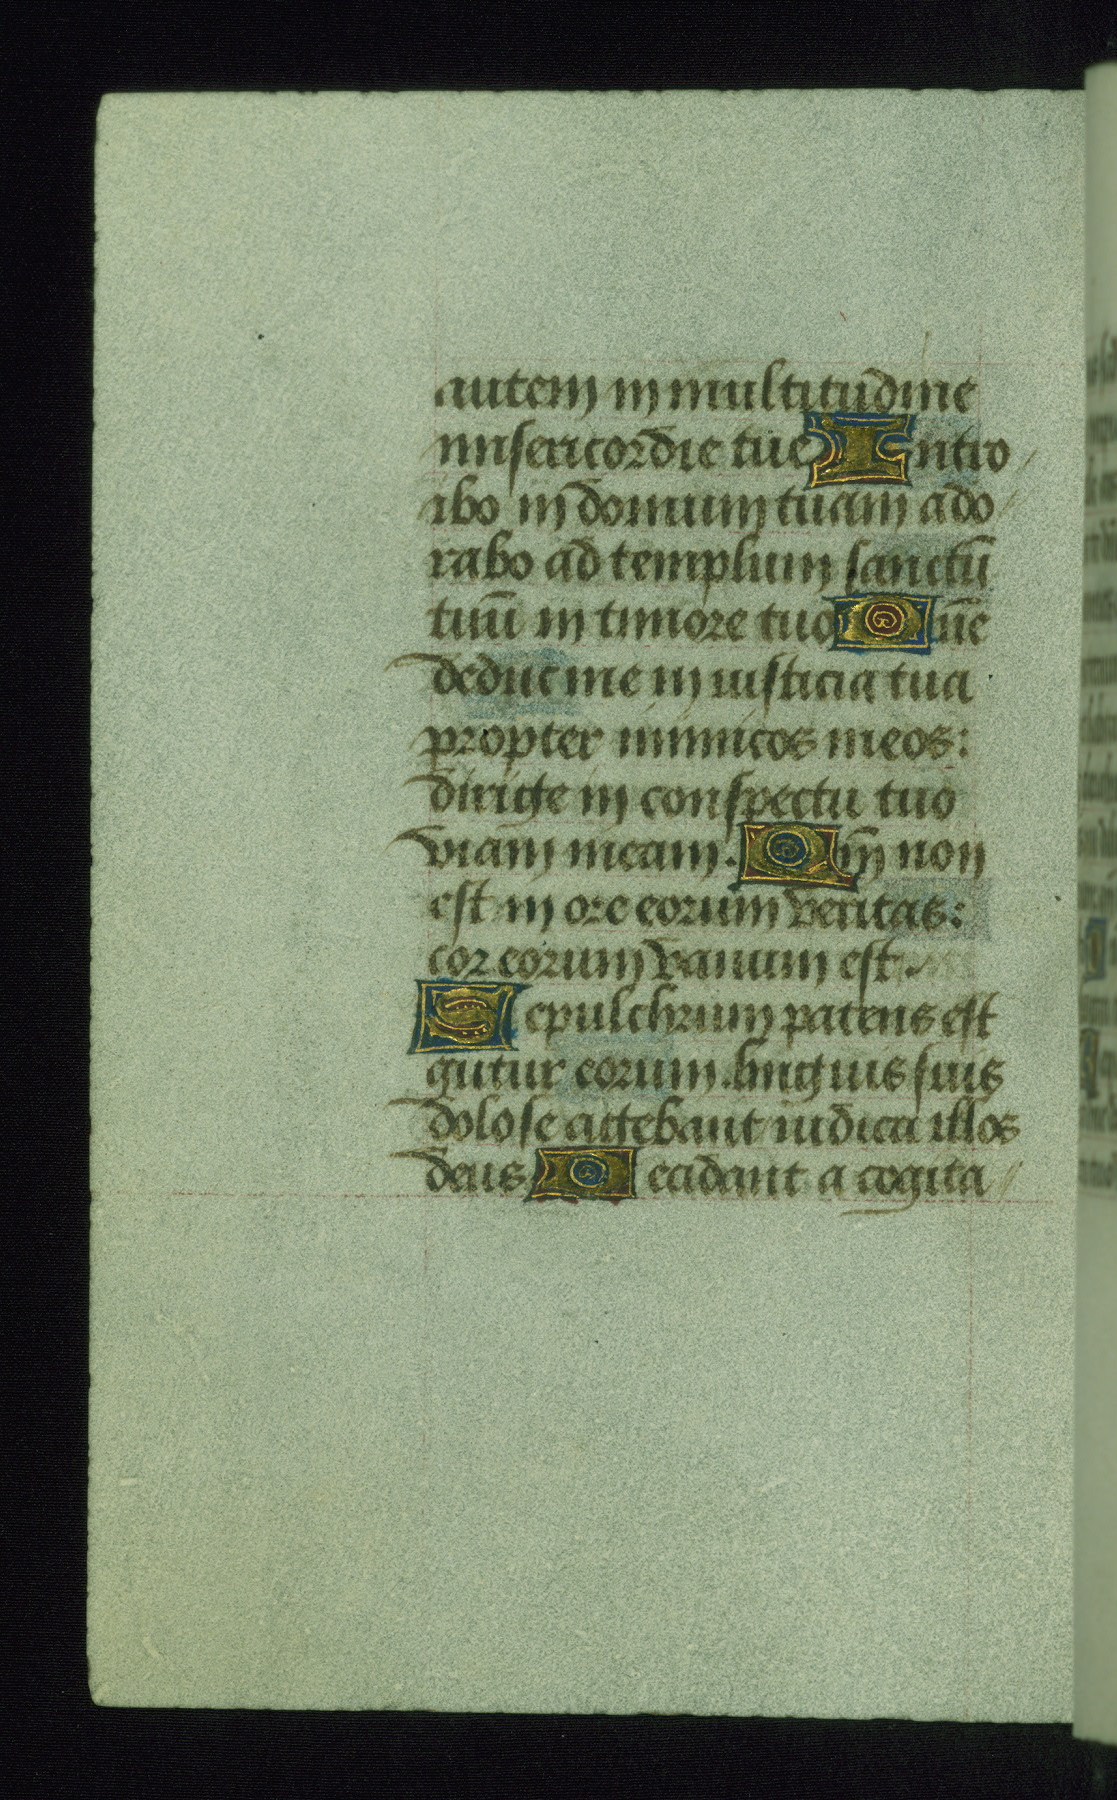 autem in multitudine
misericordie tue Intro
ibo in domum tuam ado
rabo ad templum sanctū
tuū in timore tuo Dn̄e
deduc me in iusticia tua
propter inimicos meos:
dirige in conspectu tuo
viam meam. Qm̄ non
est in ore eorum veritas:
cor eorum vanum est.
Sepulchrum patens est
gutur eorum. linguis suis
dolose agebant iudica illos
deus Decidant a cogita